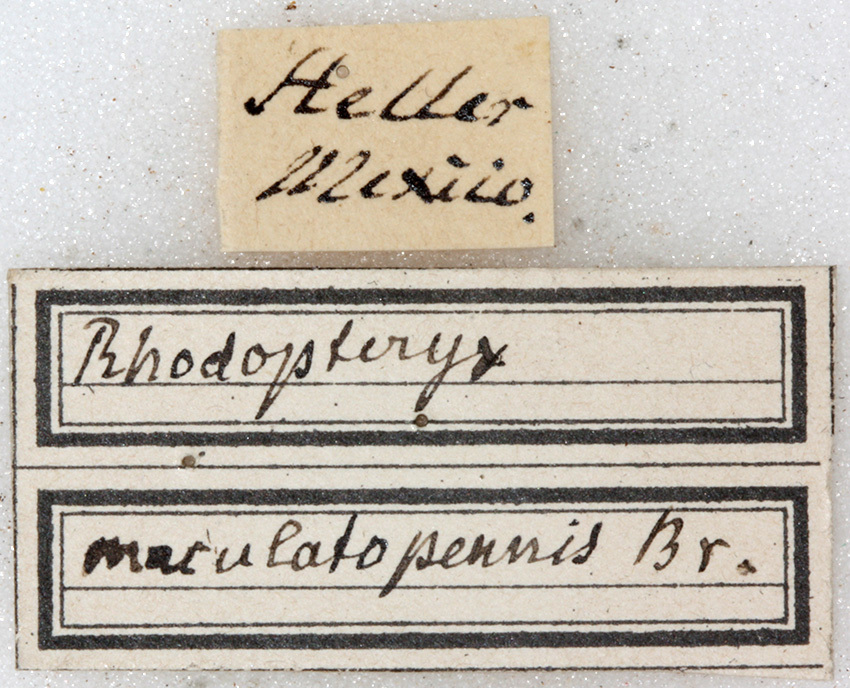 Heller
Mexico.
Rhodopteryx
maculatopennis Br.